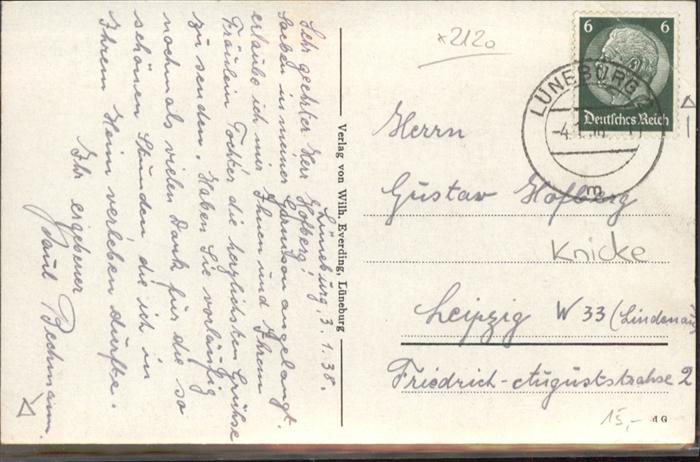 Lüneburg, 3.1.38.
Sehr geehrter Herr Hofberg!
Soeben in meiner Garnison angelangt
erlaube ich mir Ihnen und Ihrem
Fräulein Tochter die herzlichsten Grüße
zu senden. Haben Sie vorläufig
nochmals vielen Dank für die so
schönen Stunden die ich in
Ihrem Heim verleben durfte.
Ihr ergebener
Paul Bechmann.
Verlag von Wilh. Everding, Lüneburg
x2120
6 6
Deutsches Reich
LÜNEBURG 2
m
Herrn
Gustav Hofberg
Knicke
Leipzig W 33 (Lindenau)
Friedrich-Auguststrahse 2
15,-